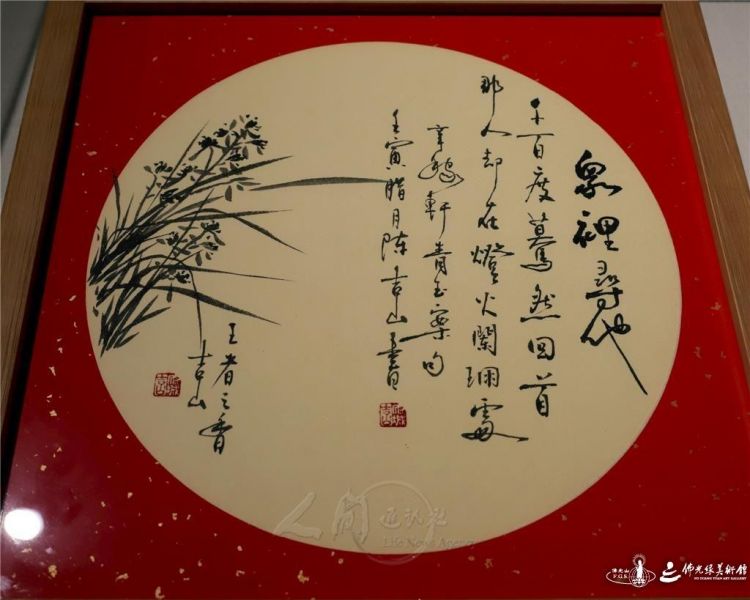 衆裡尋他
千百度驀然回首
那人却在燈火闌珊處
辛稼軒青玉案句
壬寅腊月陈吉山書
王者之香
吉山
人間通訊社
Life News Agency
佛光山
F.G.S.
佛光緣美術館
FO GUANG YUAN ART GALLERY